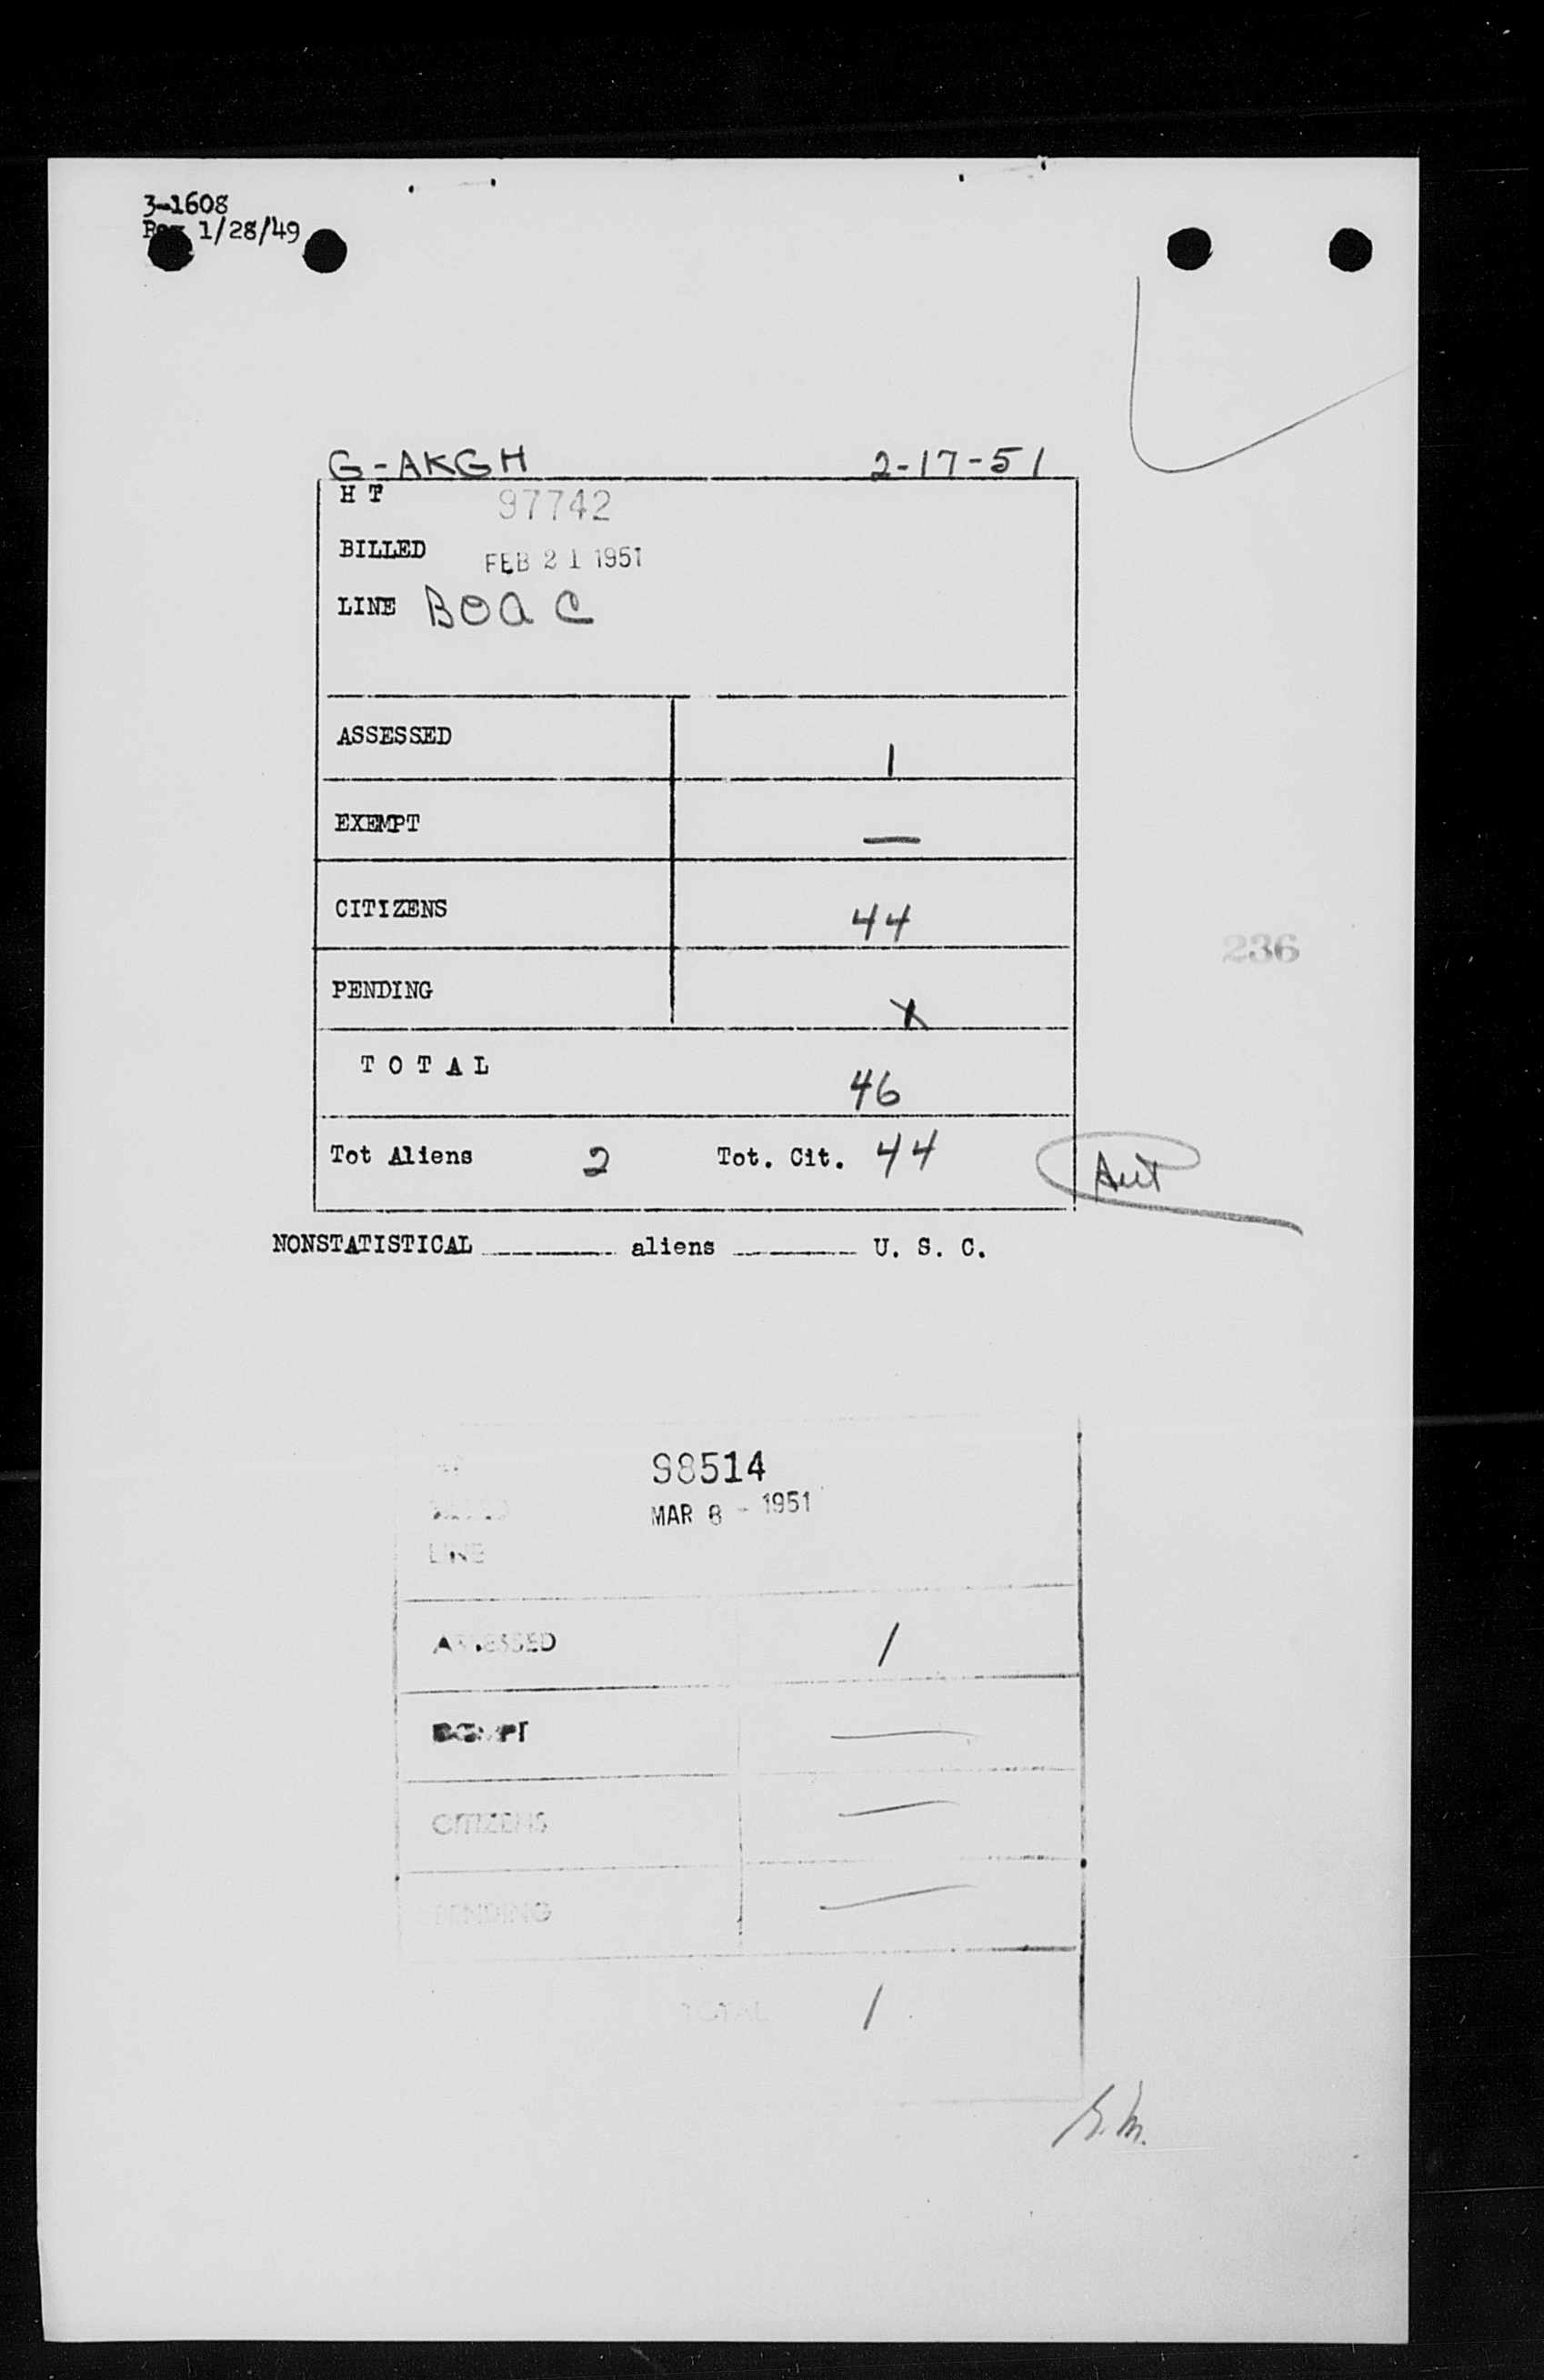 3-1608
1/28/49
G-AKGH 2-17-51
H T 97742
BILLED FEB 21 1951
LINE BOAC
ASSESSED 1
EXEMPT —
CITIZENS 44
236
PENDING X
TOTAL 46
Tot Aliens 2 Tot. Cit. 44
NONSTATISTICAL ______ aliens ______ U. S. C.
98514
MAR 8 - 1951
LINE
ASSESSED 1
EXEMPT —
CITIZENS —
PENDING —
TOTAL 1